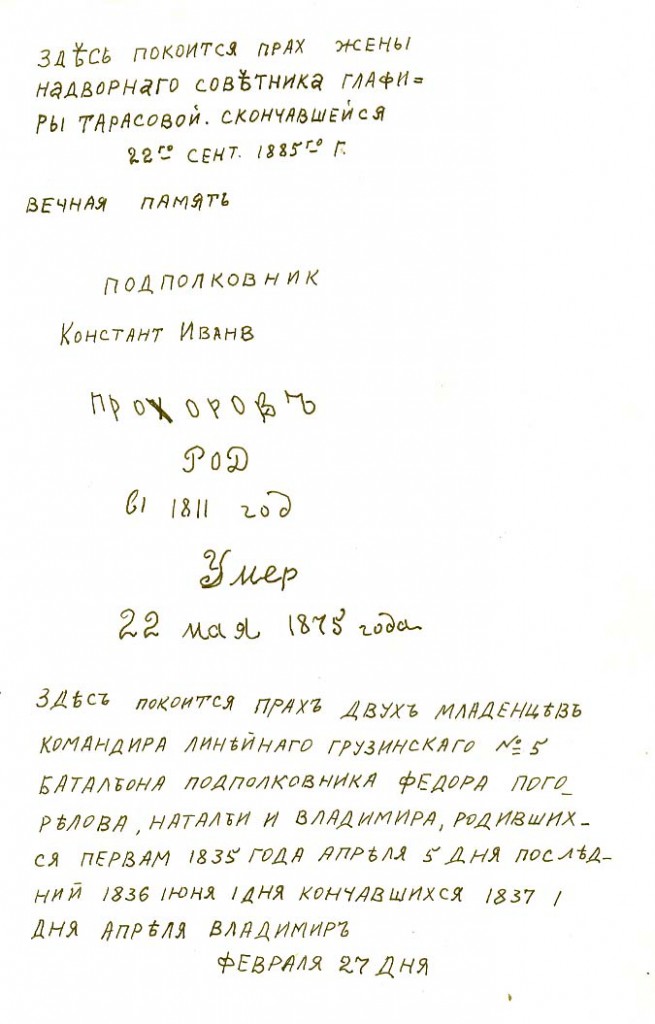 ЗДѢСЬ ПОКОИТСЯ ПРАХ ЖЕНЫ
НАДВОРНАГО СОВѢТНИКА ГЛАФИ=
РЫ ТАРАСОВОЙ. СКОНЧАВШЕЙСЯ
22го СЕНТ. 1885го Г.
ВЕЧНАЯ ПАМЯТЬ
ПОДПОЛКОВНИК
КОНСТАНТ ИВАНВ
ПРОХОРОВЪ
РОД
ВІ 1811 год
Умер
22 мая 1875 года
ЗДѢСЪ ПОКОИТСЯ ПРАХЪ ДВУХЪ МЛАДЕНЦѢВЪ
КОМАНДИРА ЛИНѢЙНАГО ГРУЗИНСКАГО № 5
БАТАЛЬОНА ПОДПОЛКОВНИКА ФЕДОРА ПОГО_
РѢЛОВА, НАТАЛЬИ И ВЛАДИМИРА, РОДИВШИХ_
СЯ ПЕРВАМ 1835 ГОДА АПРѢЛЯ 5 ДНЯ ПОСЛѢД_
НИЙ 1836 ІЮНЯ 1 ДНЯ КОНЧАВШИХСЯ 1837 1
ДНЯ АПРѢЛЯ ВЛАДИМИРЪ
ФЕВРАЛЯ 27 ДНЯ